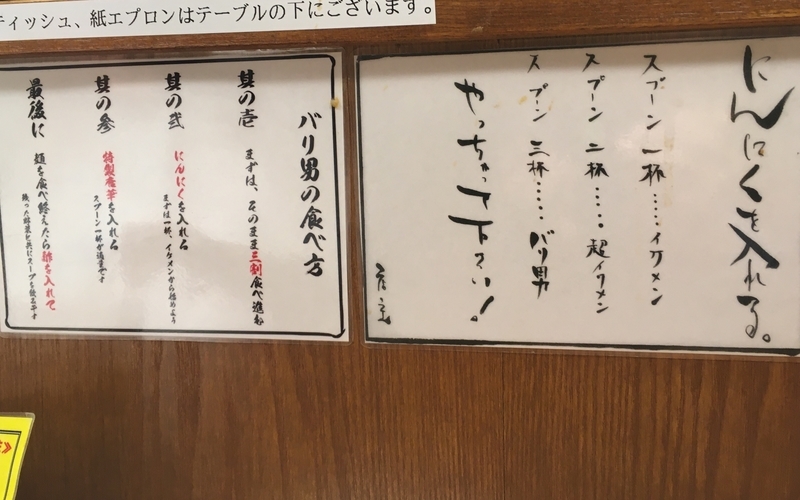 ティッシュ、紙エプロンはテーブルの下にございます。
にんにくを入れる。
スプーン一杯……イケメン
スプーン二杯……超イケメン
スプーン三杯……バリ男
やっちゃって下さい！
バリ男の食べ方
其の壱 まずは、そのまま三割食べ進む
其の弐 にんにくを入れる
まずは一杯、イケメンから始めよう
其の参 特製唐華を入れる
スプーン一杯が適量です
最後に 麺を食べ終えたら酢を入れて
残った野菜と共にスープを飲み干す